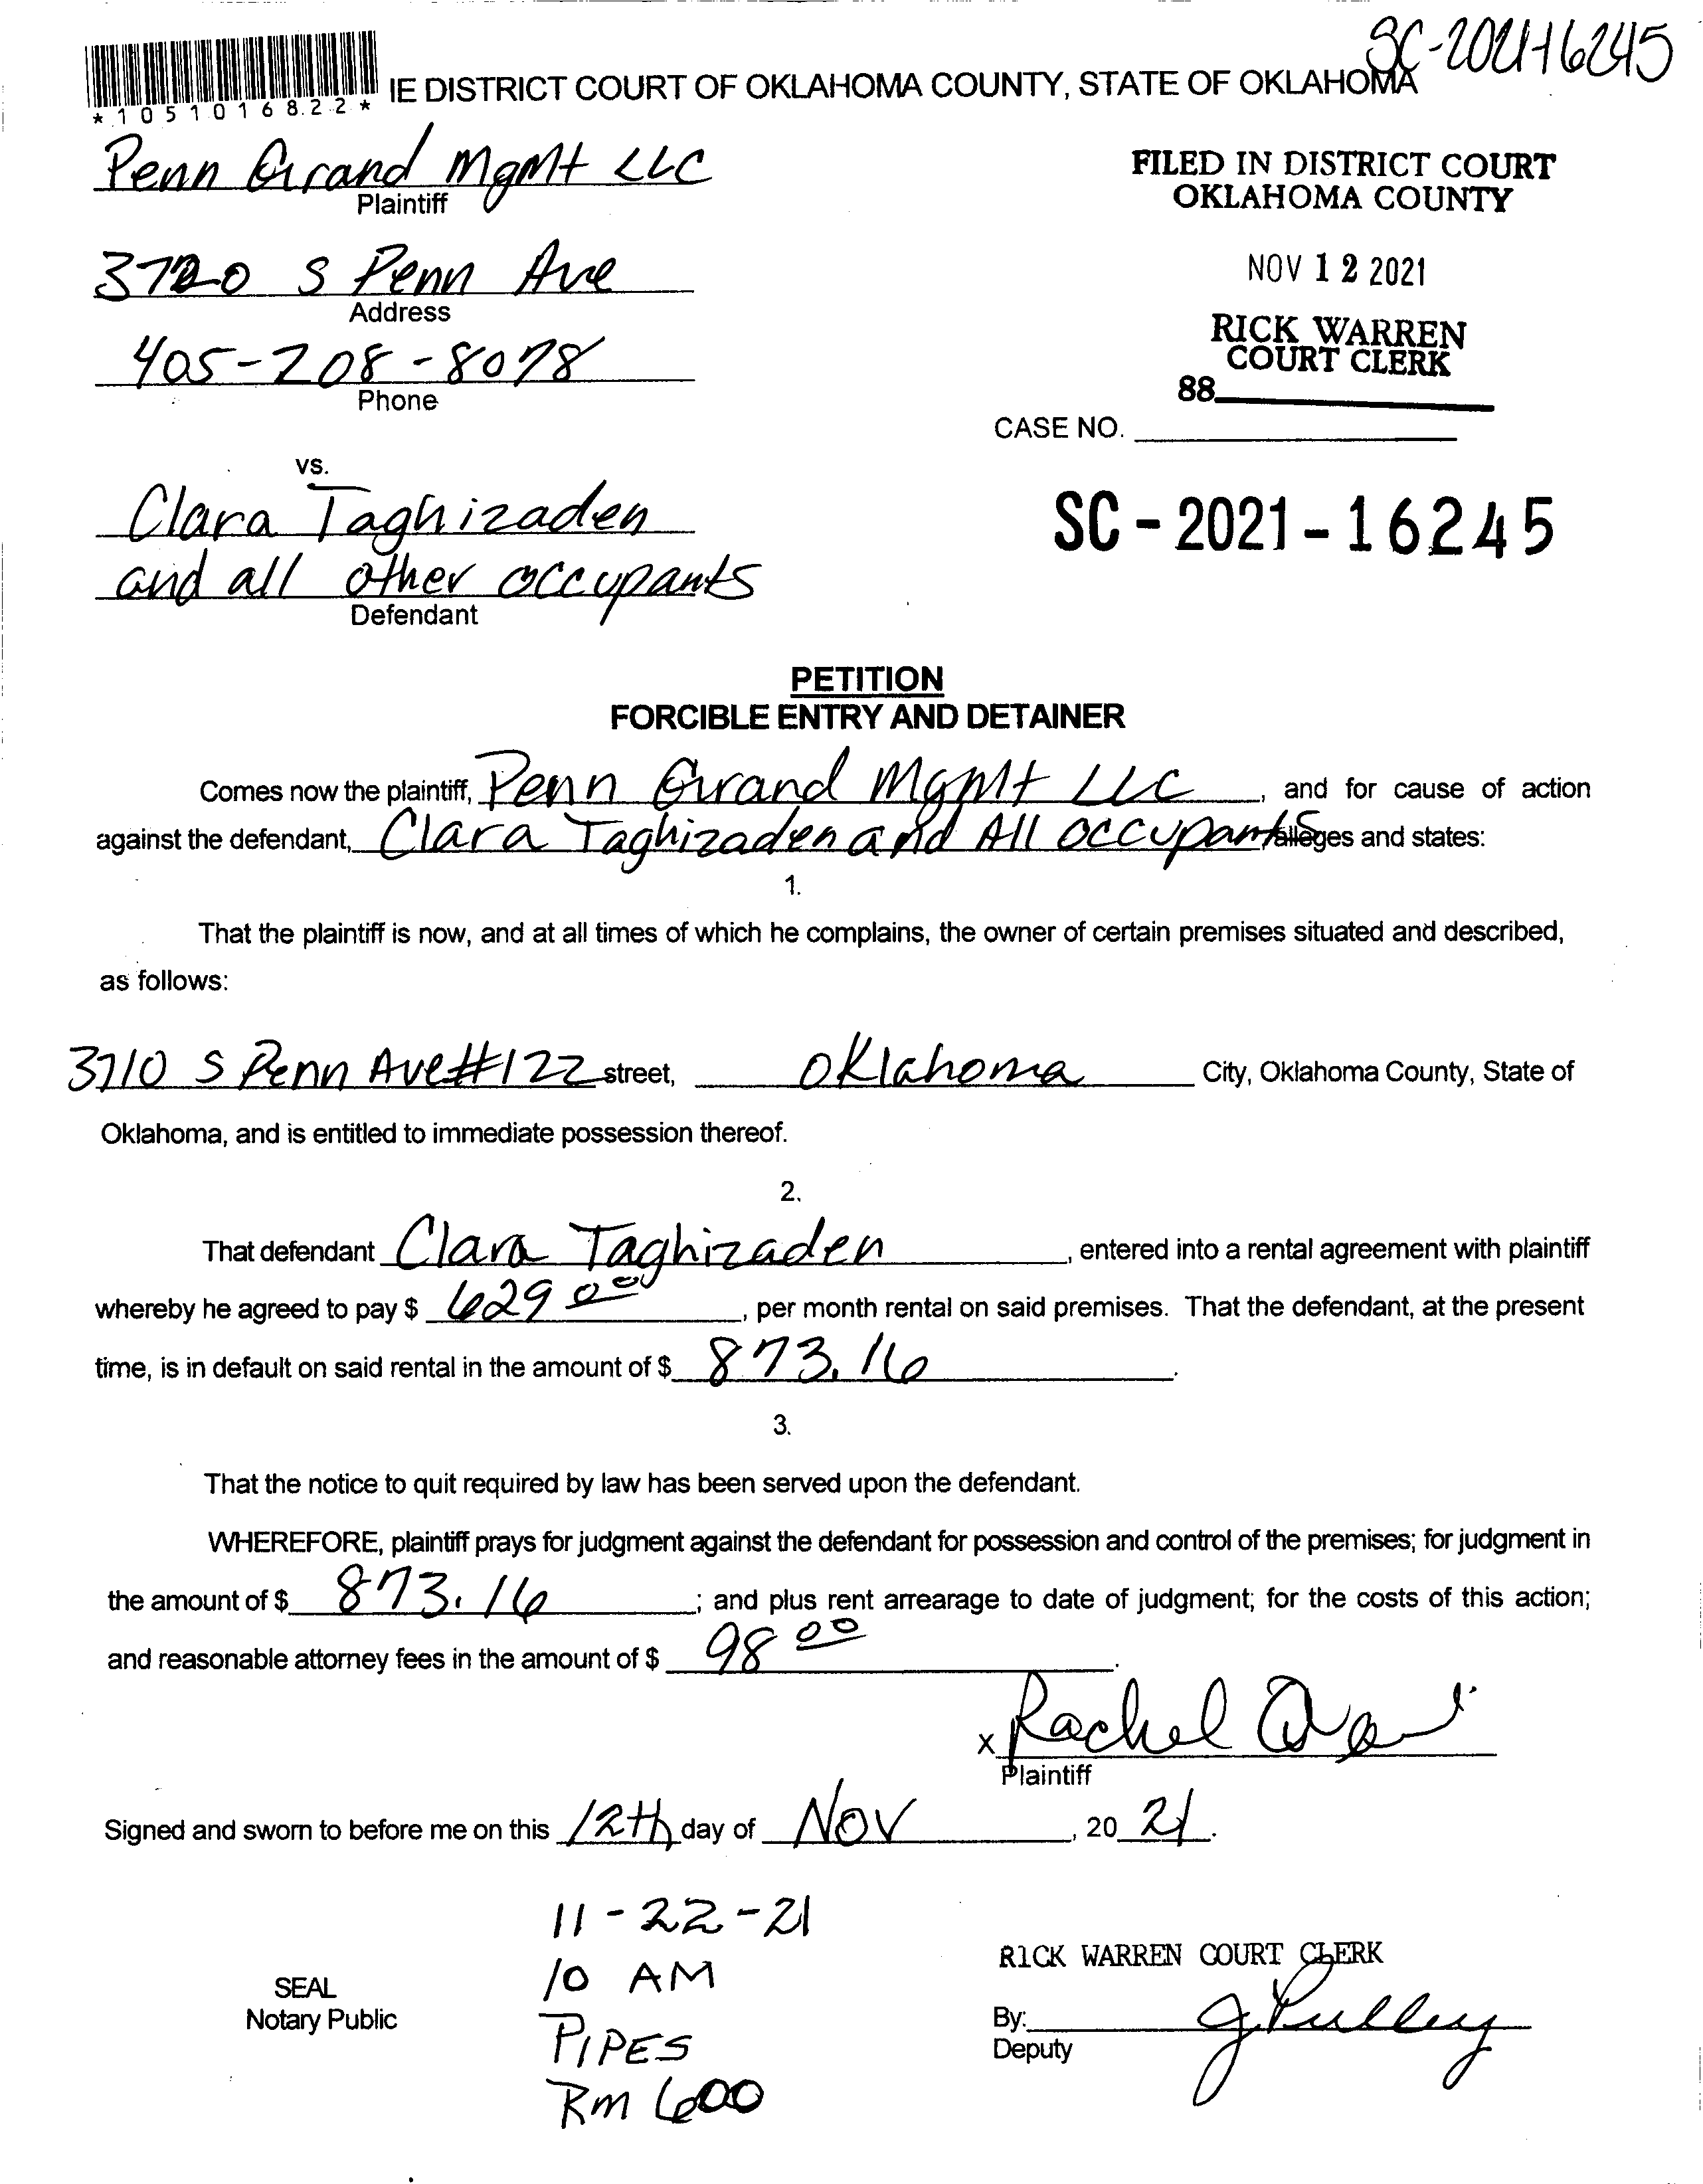 SC-2021-16245
IE DISTRICT COURT OF OKLAHOMA COUNTY, STATE OF OKLAHOMA
*1051016822*
Penn Grand MgMt LLC
Plaintiff
FILED IN DISTRICT COURT
OKLAHOMA COUNTY
3720 S Penn Ave
Address
NOV 12 2021
405-208-8078
Phone
RICK WARREN
COURT CLERK
88
CASE NO.
vs.
Clara Taghizaden
and all other occupants
Defendant
SC-2021-16245
PETITION
FORCIBLE ENTRY AND DETAINER
Comes now the plaintiff, Penn Grand MgMt LLC, and for cause of action
against the defendant, Clara Taghizaden and All occupants alleges and states:
1.
That the plaintiff is now, and at all times of which he complains, the owner of certain premises situated and described,
as follows:
3710 S Penn Ave #122 street, Oklahoma City, Oklahoma County, State of
Oklahoma, and is entitled to immediate possession thereof.
2.
That defendant Clara Taghizaden, entered into a rental agreement with plaintiff
whereby he agreed to pay $ 629 00, per month rental on said premises. That the defendant, at the present
time, is in default on said rental in the amount of $ 873.16.
3.
That the notice to quit required by law has been served upon the defendant.
WHEREFORE, plaintiff prays for judgment against the defendant for possession and control of the premises; for judgment in
the amount of $ 873.16; and plus rent arrearage to date of judgment; for the costs of this action;
and reasonable attorney fees in the amount of $ 98 00.
x Rachel
Plaintiff
Signed and sworn to before me on this 12th day of Nov, 20 21.
11-22-21
10 AM
PIPES
Rm 600
SEAL
Notary Public
RICK WARREN COURT CLERK
By: J. Pulley
Deputy